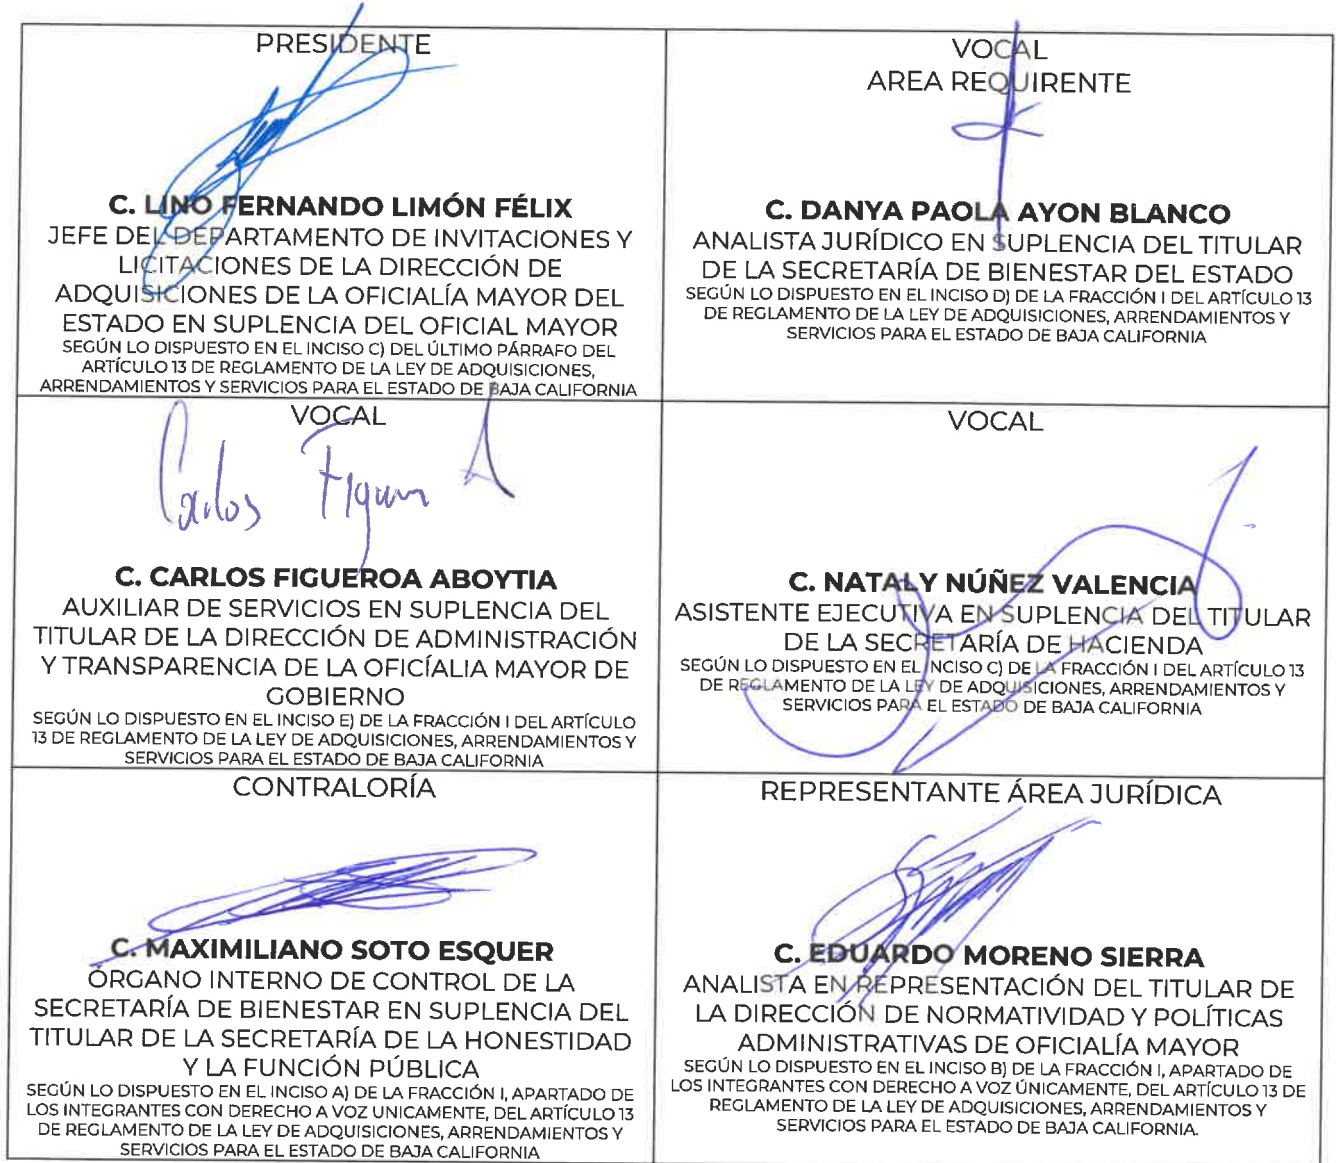 PRESIDENTE
C. LINO FERNANDO LIMÓN FÉLIX
JEFE DEL DEPARTAMENTO DE INVITACIONES Y
LICITACIONES DE LA DIRECCIÓN DE
ADQUISICIONES DE LA OFICIALÍA MAYOR DEL
ESTADO EN SUPLENCIA DEL OFICIAL MAYOR
SEGÚN LO DISPUESTO EN EL INCISO C) DEL ÚLTIMO PÁRRAFO DEL
ARTÍCULO 13 DE REGLAMENTO DE LA LEY DE ADQUISICIONES,
ARRENDAMIENTOS Y SERVICIOS PARA EL ESTADO DE BAJA CALIFORNIA
VOCAL
AREA REQUIRENTE
C. DANYA PAOLA AYON BLANCO
ANALISTA JURÍDICO EN SUPLENCIA DEL TITULAR
DE LA SECRETARÍA DE BIENESTAR DEL ESTADO
SEGÚN LO DISPUESTO EN EL INCISO D) DE LA FRACCIÓN I DEL ARTÍCULO 13
DE REGLAMENTO DE LA LEY DE ADQUISICIONES, ARRENDAMIENTOS Y
SERVICIOS PARA EL ESTADO DE BAJA CALIFORNIA
VOCAL
Carlos
C. CARLOS FIGUEROA ABOYTIA
AUXILIAR DE SERVICIOS EN SUPLENCIA DEL
TITULAR DE LA DIRECCIÓN DE ADMINISTRACIÓN
Y TRANSPARENCIA DE LA OFICÍALIA MAYOR DE
GOBIERNO
SEGÚN LO DISPUESTO EN EL INCISO E) DE LA FRACCIÓN I DEL ARTÍCULO
13 DE REGLAMENTO DE LA LEY DE ADQUISICIONES, ARRENDAMIENTOS Y
SERVICIOS PARA EL ESTADO DE BAJA CALIFORNIA
VOCAL
C. NATALY NÚÑEZ VALENCIA
ASISTENTE EJECUTIVA EN SUPLENCIA DEL TITULAR
DE LA SECRETARÍA DE HACIENDA
SEGÚN LO DISPUESTO EN EL INCISO C) DE LA FRACCIÓN I DEL ARTÍCULO 13
DE REGLAMENTO DE LA LEY DE ADQUISICIONES, ARRENDAMIENTOS Y
SERVICIOS PARA EL ESTADO DE BAJA CALIFORNIA
CONTRALORÍA
C. MAXIMILIANO SOTO ESQUER
ÓRGANO INTERNO DE CONTROL DE LA
SECRETARÍA DE BIENESTAR EN SUPLENCIA DEL
TITULAR DE LA SECRETARÍA DE LA HONESTIDAD
Y LA FUNCIÓN PÚBLICA
SEGÚN LO DISPUESTO EN EL INCISO A) DE LA FRACCIÓN I, APARTADO DE
LOS INTEGRANTES CON DERECHO A VOZ UNICAMENTE, DEL ARTÍCULO 13
DE REGLAMENTO DE LA LEY DE ADQUISICIONES, ARRENDAMIENTOS Y
SERVICIOS PARA EL ESTADO DE BAJA CALIFORNIA
REPRESENTANTE ÁREA JURÍDICA
C. EDUARDO MORENO SIERRA
ANALISTA EN REPRESENTACIÓN DEL TITULAR DE
LA DIRECCIÓN DE NORMATIVIDAD Y POLÍTICAS
ADMINISTRATIVAS DE OFICIALÍA MAYOR
SEGÚN LO DISPUESTO EN EL INCISO B) DE LA FRACCIÓN I, APARTADO DE
LOS INTEGRANTES CON DERECHO A VOZ ÚNICAMENTE, DEL ARTÍCULO 13 DE
REGLAMENTO DE LA LEY DE ADQUISICIONES, ARRENDAMIENTOS Y
SERVICIOS PARA EL ESTADO DE BAJA CALIFORNIA.